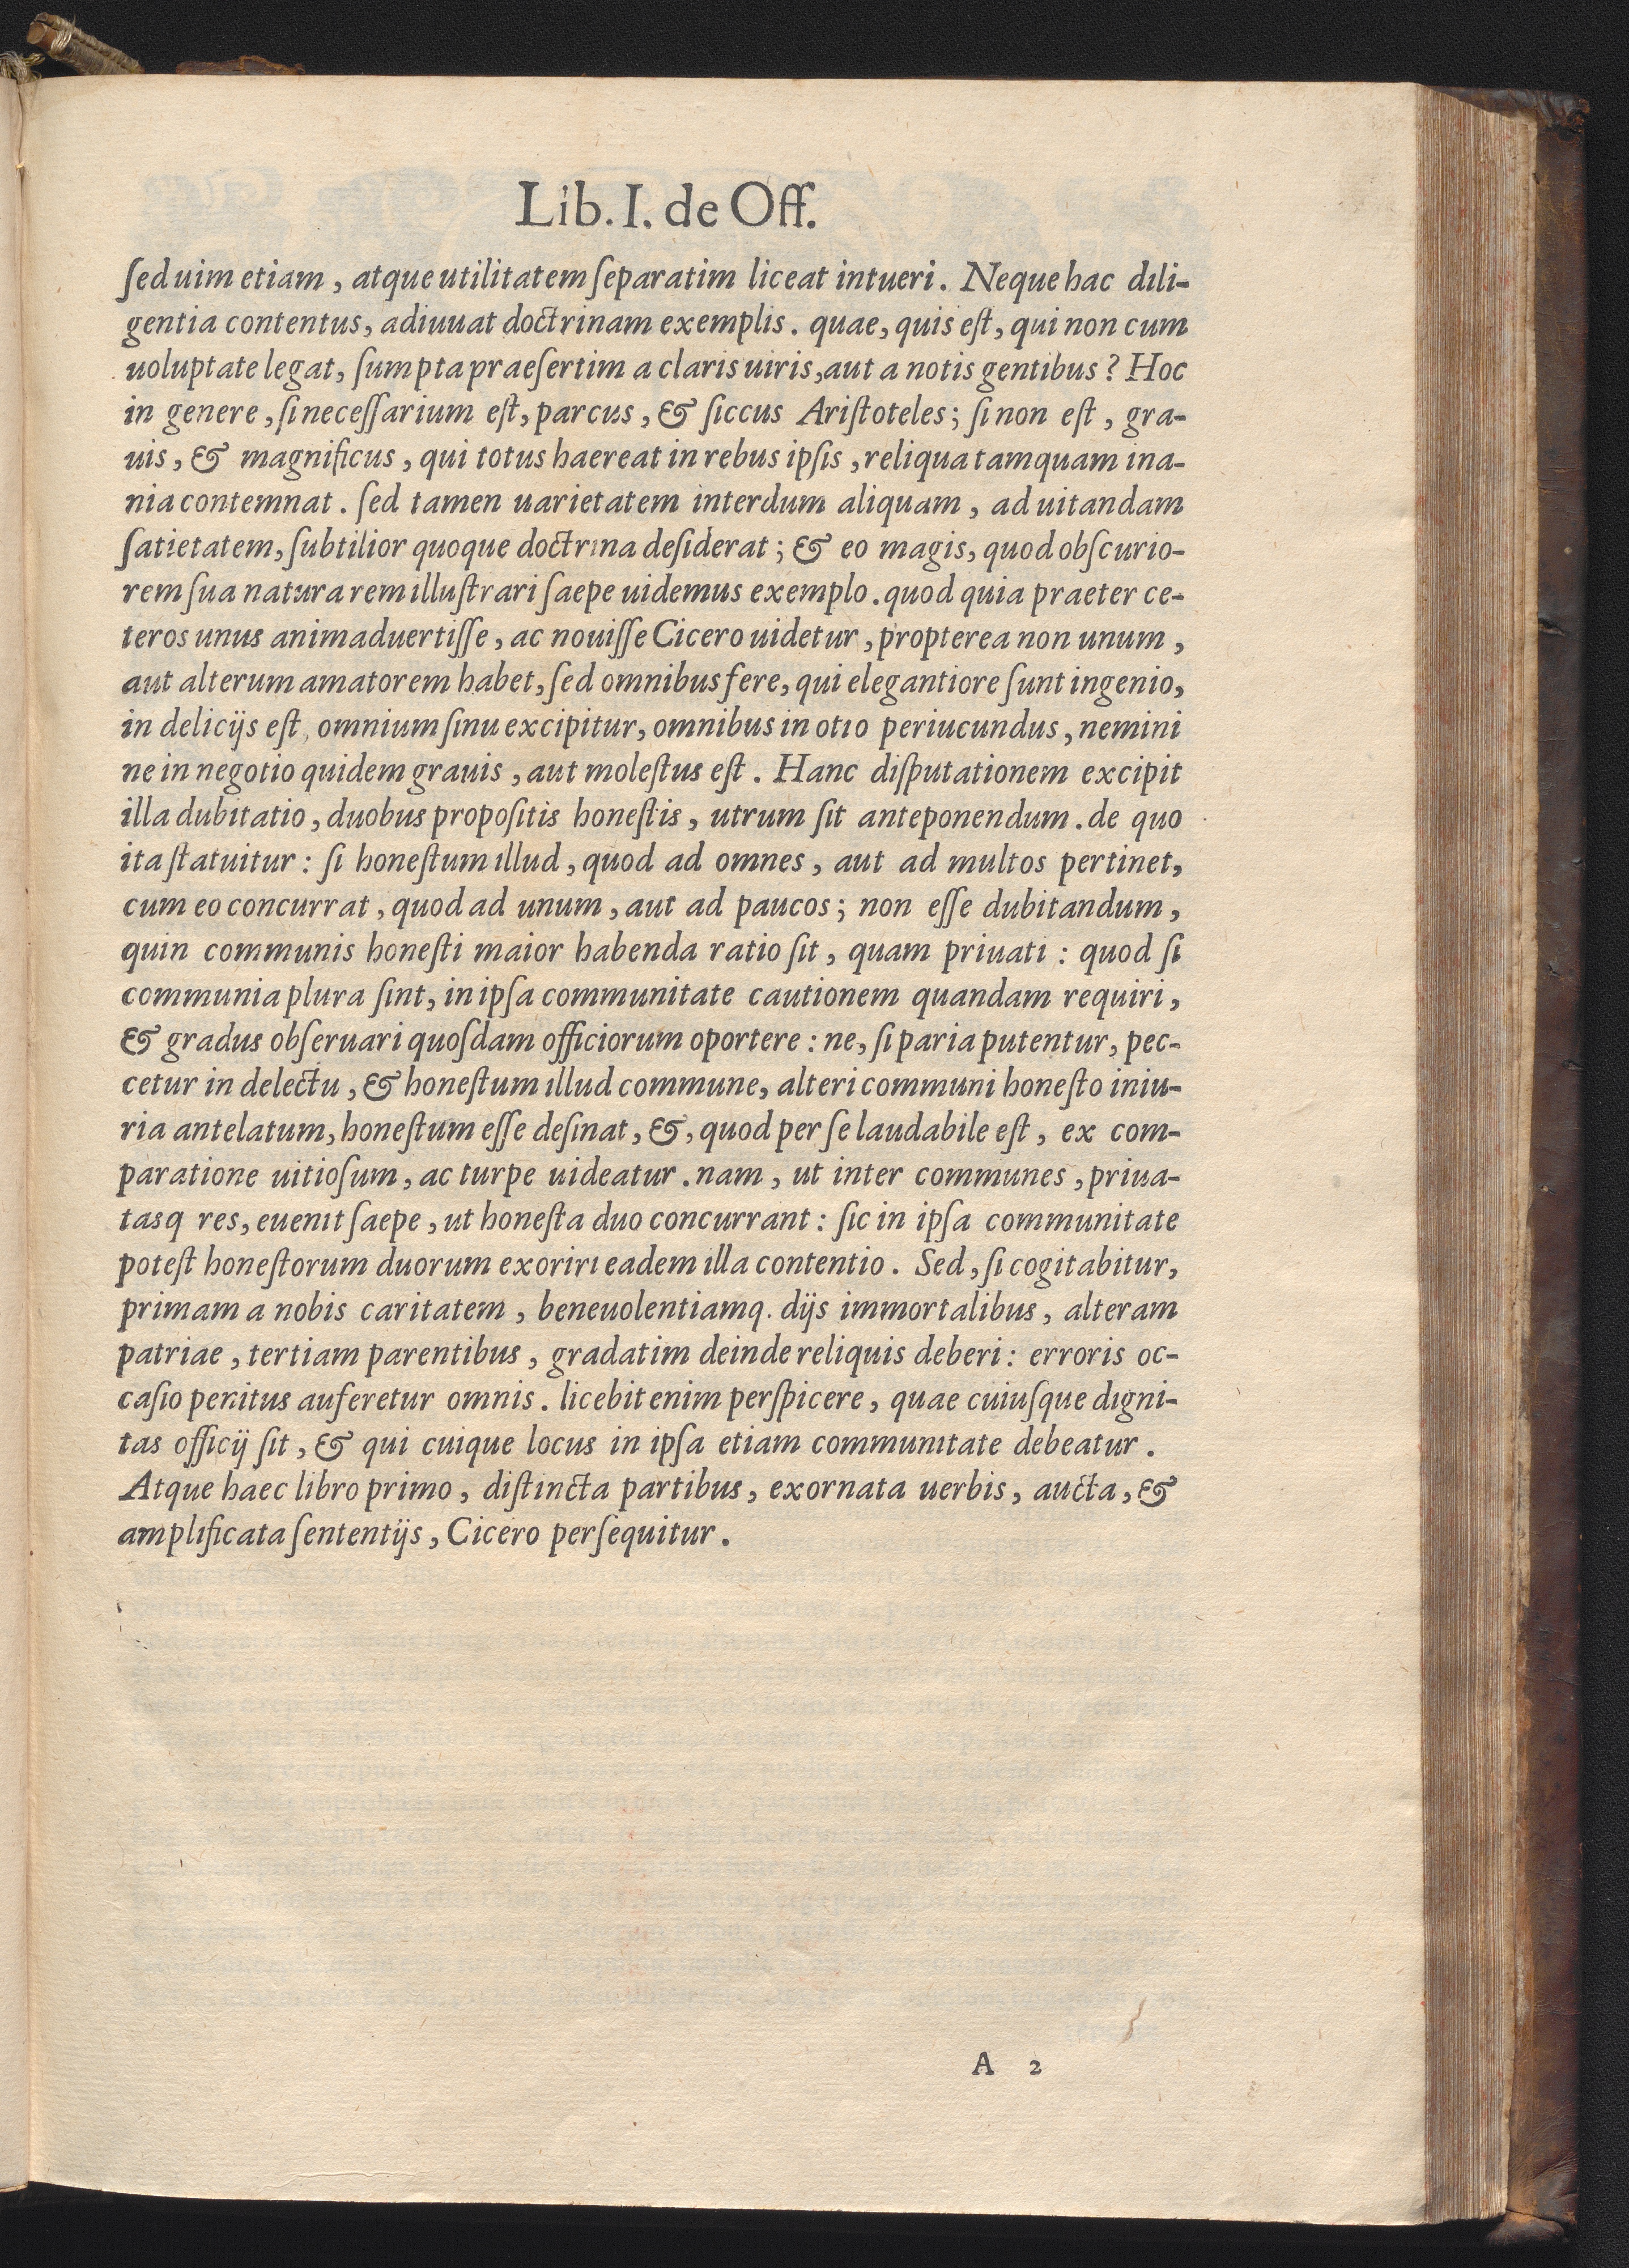 Lib. I. de Off.
ſed uim etiam, atque utilitatem ſeparatim liceat intueri. Neque hac dili-
gentia contentus, adiuuat doctrinam exemplis. quae, quis eſt, qui non cum
uoluptate legat, ſumpta praeſertim a claris uiris, aut a notis gentibus? Hoc
in genere, ſi neceſſarium eſt, parcus, & ſiccus Ariſtoteles; ſi non eſt, gra-
uis, & magnificus, qui totus haereat in rebus ipſis, reliqua tamquam ina-
nia contemnat. ſed tamen uarietatem interdum aliquam, ad uitandam
ſatietatem, ſubtilior quoque doctrina deſiderat; & eo magis, quod obſcurio-
rem ſua natura rem illuſtrari ſaepe uidemus exemplo. quod quia praeter ce-
teros unus animaduertiſſe, ac nouiſſe Cicero uidetur, propterea non unum,
aut alterum amatorem habet, ſed omnibus fere, qui elegantiore ſunt ingenio,
in delicijs eſt, omnium ſinu excipitur, omnibus in otio periucundus, nemini
ne in negotio quidem grauis, aut moleſtus eſt. Hanc diſputationem excipit
illa dubitatio, duobus propoſitis honeſtis, utrum ſit anteponendum. de quo
ita ſtatuitur: ſi honeſtum illud, quod ad omnes, aut ad multos pertinet,
cum eo concurrat, quod ad unum, aut ad paucos; non eſſe dubitandum,
quin communis honeſti maior habenda ratio ſit, quam priuati: quod ſi
communia plura ſint, in ipſa communitate cautionem quandam requiri,
& gradus obſeruari quoſdam officiorum oportere: ne, ſi paria putentur, pec-
cetur in delectu, & honeſtum illud commune, alteri communi honeſto iniu-
ria antelatum, honeſtum eſſe deſinat, &, quod per ſe laudabile eſt, ex com-
paratione uitioſum, ac turpe uideatur. nam, ut inter communes, priua-
tasq res, euenit ſaepe, ut honeſta duo concurrant: ſic in ipſa communitate
poteſt honeſtorum duorum exoriri eadem illa contentio. Sed, ſi cogitabitur,
primam a nobis caritatem, beneuolentiamq. dijs immortalibus, alteram
patriae, tertiam parentibus, gradatim deinde reliquis deberi: erroris oc-
caſio penitus auferetur omnis. licebit enim perſpicere, quae cuiuſque digni-
tas officij ſit, & qui cuique locus in ipſa etiam communitate debeatur.
Atque haec libro primo, diſtincta partibus, exornata uerbis, aucta, &
amplificata ſententijs, Cicero perſequitur.
A 2